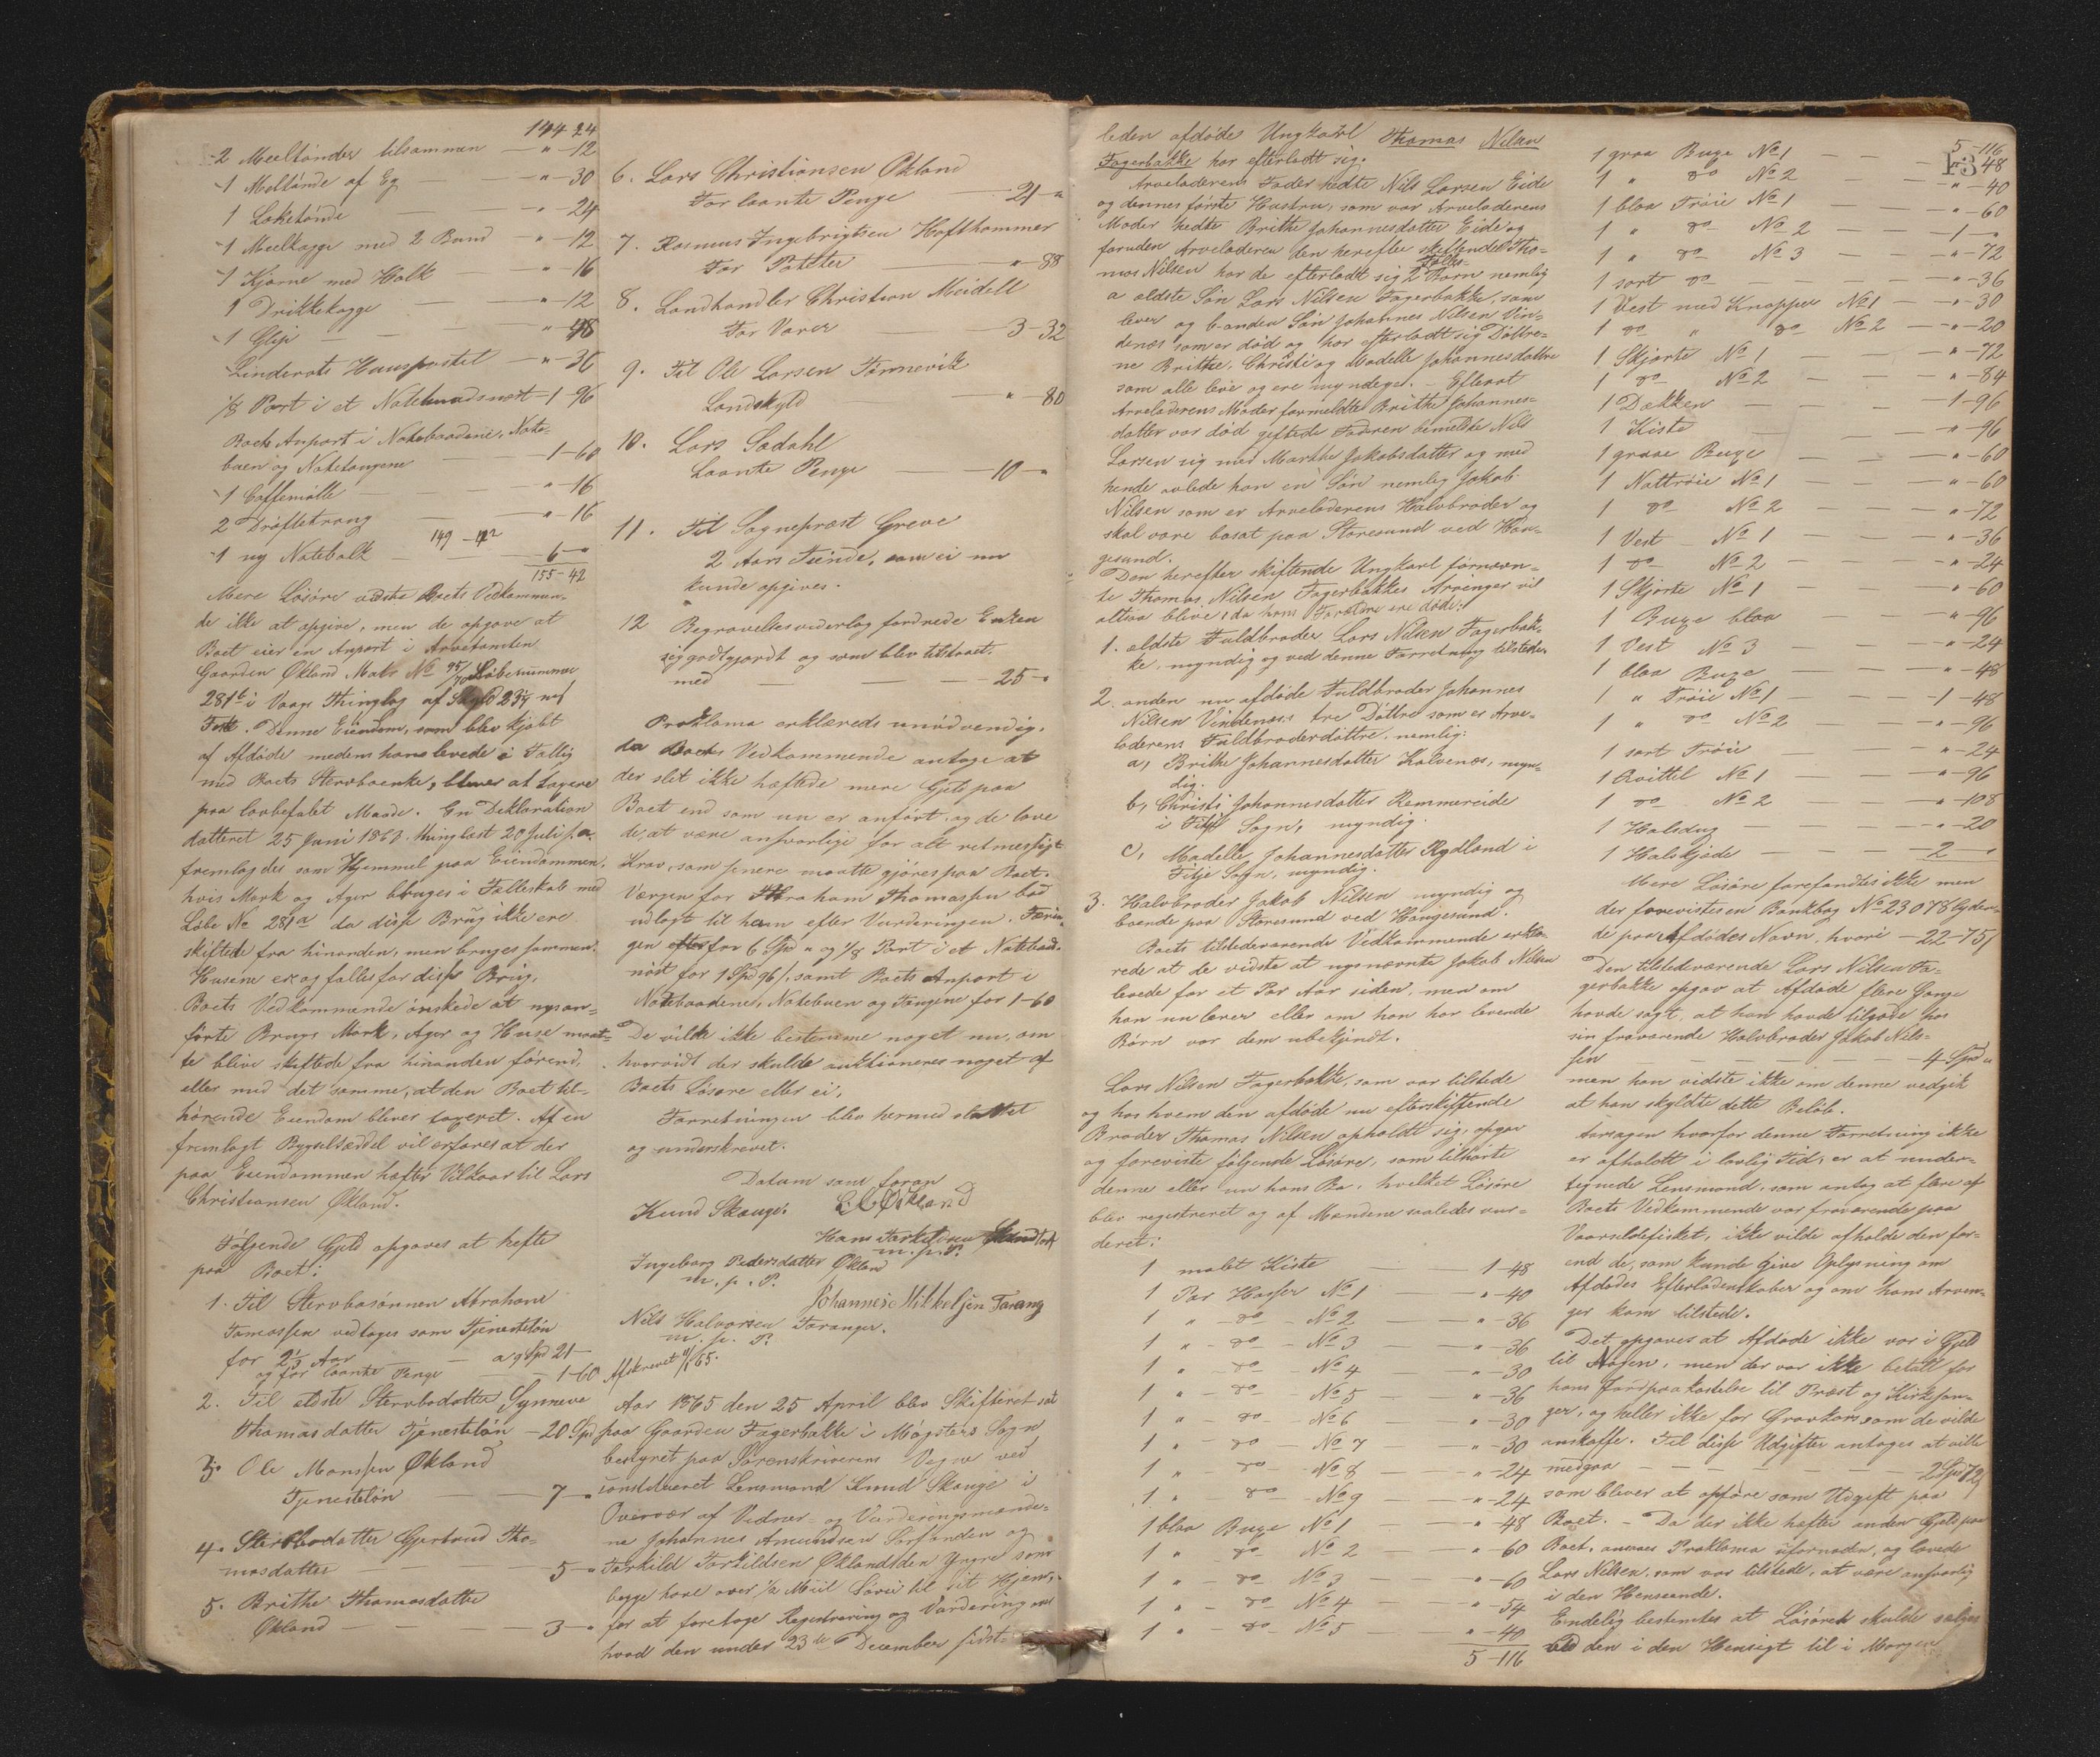 144-24
2 Meeltønder tilsammen — " -12
1 Meeltønde af Eg — " -30
1 Laketønde — " -24
1 Meelkagge med 2 Bund - " -12
1 Kjærne med Holk — " -16
1 Drikkekagge — " -12
1 Glip — " -48
Linderots Huuspostil — " -36
1/8 Part i et Notebaadsnøst -1-96
Boets Anpart i Notebaadene, Note-
buen og Notetougene — 1-60
1 Caffemølle — " -16
2 Drøftetroug — " -16
149-42
1 ny Notebolk — 6-"
155-42
Mere Løsøre vidste Boets Vedkommen-
de ikke at opgive, men de opgave at
Boet eier en Anpart i
Gaarden Økland Matr No 95/ Løbenummer
281b i Vaags Thinglag af Skyld
Denne Eiendom, som blev kjøbt
af Afdøde medens han levede i Fællig
med Boets Stervboenke, bliver at taxere
paa lovbefalet Maade. En Deklaration
datteret 25 Juni 1863. thinglæst 20 Juli s.a.
fremlagdes som Hjemmel paa Eiendommen,
hvis Mark og Ager bruges i Fælleskab med
Løbe No 281a da disse Brug ikke ere
skiftede fra hinanden, men bruges sammen.
Husene er og fælles for disse Brug.
Boets Vedkommende ønskede at nysan-
førte Brugs Mark, Ager og Huse maat-
te blive skiftede fra hinanden førend,
eller med det samme, at den Boet til-
hørende Eiendom bliver taxeret. Af en
fremlagt Bygselseddel vil erfares at der
paa Eiendommen hæfter Vilkaar til Lars
Christiansen Økland.
Følgende Gjeld opgaves at hefte
paa Boet:
1. Til Stervbosønnen Abraham
Tomassen vedtages som Tjenesteløn
for 2½ Aar — 21-
og for laante Penge — 1-60
2. Til ældste Stervbodatter Synneve
Thomasdatter Tjenesteløn - 20 Spd
3. Ole Monssen Økland
Tjenesteløn — 7-"
4. Stervbodatter Gjertrud Tho-
masdatter — 5-"
5. Brithe Thomasdatter
Økland — 3-"
6. Lars Christiansen Økland
For laante Penge — 21-"
7. Rasmus Ingebrigtsen Hofthammer
For Poteter — "-88
8. Landhandler Christian Meidell
For Varer — 3-32
9. Til Ole Larsen Tørnevik
Landskyld — "-80
10. Lars Sædahl
Laante Penge — 10-"
11. Til Sognepræst Greve
2 Aars Tiende, som ei nu
kunde opgives.
12 Begravelsesvederlag fordrede Enken
sig godtgjordt og som blev tilstaaet.
med — 25-"
Proklama erklæreds unødvendig,
da Boets Vedkommende antoge at
der slet ikke hæftede mere Gjeld paa
Boet end som nu er anført, og de love
de, at være ansvarlige for alt retmessigt
Krav, som senere maatte gjøres paa Boet.
Værgen for Abraham Thomassen bad
udlagt til ham efter Vurderingen.
gen for 6 Spd " og 1/8 Part i et Notebaads-
nøst for 1 Spd 96 s, samt Boets Anpart i
Notebaadene, Notebuen og Tougene for 1-60
De vilde ikke bestemme noget nu, om
hvorvidt der skulde auktioneres noget af
Boets Løsøre eller ei,
Forretningen blev hermed sluttet
og underskrevet.
Datum som foran
Knud Skauge. L. C. Økland
Hans Torkildsen
m.p.P.
Ingeborg Pedersdatter Økland
m.p.P.
Johannes Mikkelsen Tarang
Nils Halvorsen Taranger.
m.p.P.
Afskrevet /65.
Aar 1865 den 25 April blev Skifteret sat
paa Gaarden Fagerbakke i Møgsters Sogn
bestyret paa Sorenskriverens Vegne ved
constitueret Lensmand Knud Skauge i
Overvær af Vidner- og Vurderingsmænde-
ne Johannes Amundsen og
Torkild Torkildsen Øklandden Yngre som
begge have over ½ Miil Søvei til sit Hjem,
for at foretage Registrering og Vurdering over
hvad den under 23de December sidst-
leden afdøde Ungkarl Thomas Nilsen
Fagerbakke har efterladt sig.
Arveladerens Fader hedte Nils Larsen Eide
og dennes første Hustru, som var Arveladerens
Moder hedte Brithe Johannesdatter Eide og
foruden Arveladeren den herefter skiftende Tho-
mas Nilsen har de efterladt sig 2 Fælles- Børn nemlig
a ældste Søn Lars Nilsen Fagerbakke, som
lever og b anden Søn Johannes Nilsen Vin-
denæs som er død og har efterladt sig Døttre-
ne Brithe, Christi og Madelle Johannesdattre
som alle leve og ere myndige. - Efterat
Arveladerens Moder formeldte Brithe Johannes-
datter var død giftede Faderen bemeldte Nils
Larsen sig med Marthe Jakobsdatter og med
hende avlede han en Søn nemlig Jakob
Nilsen som er Arveladerens Halvbroder og
skal være bosat paa Storesund ved Hau-
gesund.
Den herefter skiftende Ungkarl fornævn-
te Thomas Nilsen Fagerbakkes Arvinger vil
altsaa blive, da hans Forældre ere døde:
1. ældste Fuldbroder Lars Nilsen Fagerbak-
ke, myndig og ved denne Forretning tilstede.
2. anden nu afdøde Fuldbroder Johannes
Nilsen Vindenæs tre Døttre som er Arve-
laderens Fuldbroderdøttre, nemlig:
a, Brithe Johannesdatter Kalvenes, myn-
dig.
b, Christi Johannesdatter Remmereide
i Fitje Sogn, myndig.
c, Madelle Johannesdatter Rydland i
Fitje Sogn, myndig.
3. Halvbroder Jakob Nilsen myndig og
boende paa Storesund ved Haugesund.
Boets tilstedeværende Vedkommende erklæ-
rede at de vidste at nysnævnte Jakob Nilsen
levede for et Par Aar siden, men om
han nu lever eller om han har levende
Børn var dem ubekjendt.
Lars Nilsen Fagerbakke, som var tilstede
og hos hvem den afdøde nu efterskiftende
Broder Thomas Nilsen opholdt sig, opgav
og foreviste følgende Løsøre, som tilhørte
denne eller nu hans Bo, hvilket Løsøre
blev registreret og af Mændene saaledes vur-
deret:
1 malet Kiste — 1-48
1 Par Hoser No 1 — "-40
1 " - do - No 2 — "-36
1 " - do - No 3 — "-36
1 " - do - No 4 — "-30
1 " - do - No 5 — "-36
1 " - do - No 6 — "-30
1 " - do - No 7 — "-30
1 " - do - No 8 — "-24
1 " - do - No 9 — "-24
1 blaa Buxe No 1 — "-48
1 " do No 2 — "-60
1 " - do No 3 — "-60
1 " - do No 4 — "-54
1 " - do No 5 — "-40
5-116
5-116
13
1 graa Buxe No 1 — "-48
1 " do No 2 — "-40
1 blaa Trøie No 1 — "-60
1 " do No 2 — 1-"
1 " do No 3 — "-72
1 sort do — "-36
1 Vest med Knapper No 1 — "-30
1 do " do No 2 — "-20
1 Skjorte No 1 — "-72
1 do No 2 — "-84
1 Dækken — 1-96
1 Kiste — "-96
1 graae Buxe — "-60
1 Nattrøie No 1 — "-60
1 do No 2 — "-72
1 Vest - No 1 — "-36
1 do No 2 — "-24
1 Skjorte No 1 — "-60
1 Buxe blaa — "-96
1 Vest No 3 — "-24
1 blaa Buxe — "-48
1 " Trøie No 1 — 1-48
1 " do No 2 — "-96
1 sort Trøie — "-24
1 Qvittel No 1 — "-96
1 do No 2 — "-108
1 Halsdug — "-20
1 Halskjæde — 2-"
Mere Løsøre forefandtes ikke men
der forevistes en Bankbog No 23078 lyden-
de paa Afdødes Navn, hvori — 22-75 s
Den tilstedeværende Lars Nilsen Fa-
gerbakke opgav at Afdøde flere Gange
havde sagt, at han havde tilgode hos
sin fraværende Halvbroder Jakob Nils-
sen — 4 Spd "
men han vidste ikke om denne vedgik
at han skyldte dette Beløb.
Aarsagen hvorfor denne Forretning ikke
er afholdt i lovlig Tid, er at under-
tegnede Lensmand, som antog at flere af
Boets Vedkommende var fraværende paa
Vaarsildefisket, ikke vilde afholde den før-
end de, som kunde give Oplysning om
Afdødes Efterladenskaber og om hans Arvin-
ger kom tilstede.
Det opgaves at Afdøde ikke var i Gjeld
til Nogen, men der var ikke betalt for
hans Jordpaakastelse til Præst og Kirkesan-
ger, og heller ikke for Gravkors som de vilde
anskaffe. Til disse Udgifter antoges at ville
medgaa — 2 Spd 72 s
som bliver at opføre som Udgift paa
Boet. - Da der ikke hæfter anden Gjeld paa
Boet, ansaaes Proklama ufornøden, og lovede
Lars Nilsen, som var tilstede, at være ansvarlig
i den Henseende.
Endelig bestemtes at Løsøret skulde sælges
ved den i den Hensigt til i Morgen